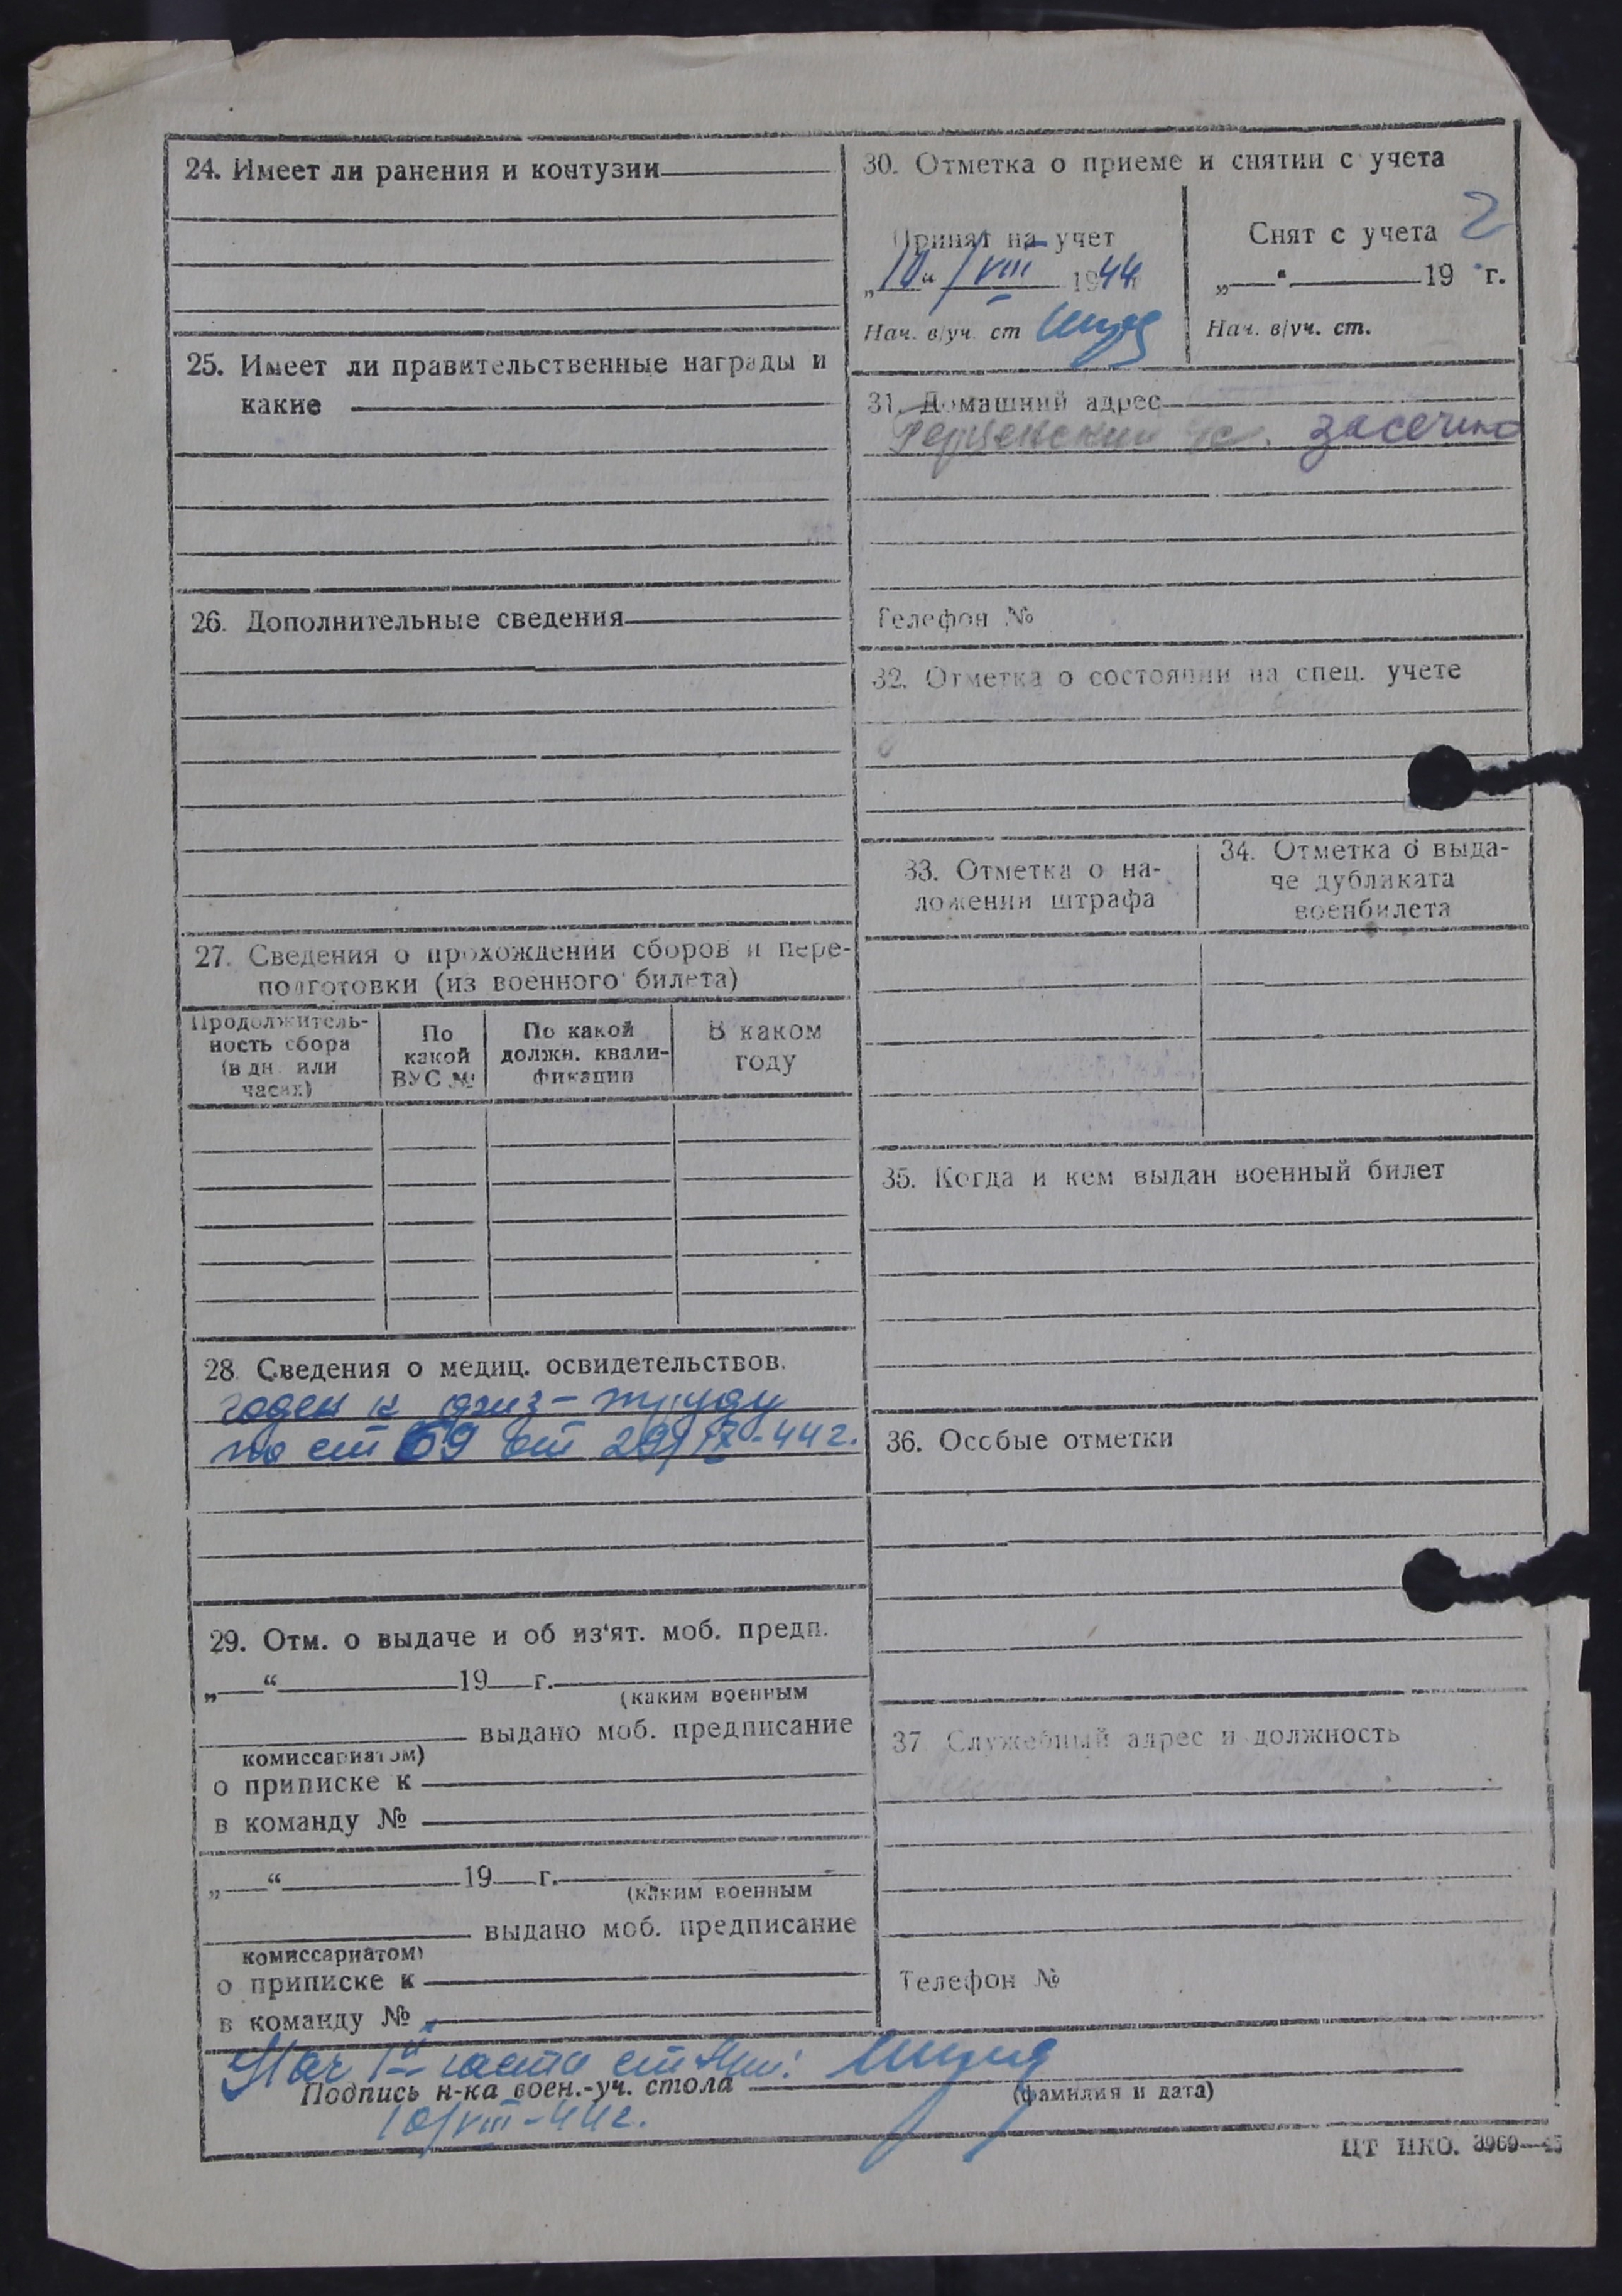 24. Имеет ли ранения и контузии
25. Имеет ли правительственные награды и
какие
26. Дополнительные сведения
27. Сведения о прохождении сборов и пере-
подготовки (из военного билета)
Продолжитель-
ность сбора
(в дн. или
часах)
По
какой
ВУС №
По какой
должн. квали-
фикации
В каком
году
28. Сведения о медиц. освидетельствов.
годен к физ-труду
по ст 69 от 29/IX-44г.
29. Отм. о выдаче и об из‘ят. моб. предп.
„ “ 19 г.
(каким военным
выдано моб. предписание
комиссариатом)
о приписке к
в команду №
„ “ 19 г.
(каким военным
выдано моб. предписание
комиссариатом)
о приписке к
в команду №
30. Отметка о приеме и снятии с учета
Принят на учет
„10“ /VIII 1944
Нач. в/уч. ст
Снят с учета 2
„ “ 19 г.
Нач. в/уч. ст.
31. Домашний адрес
засечно
Телефон №
32. Отметка о состоянии на спец. учете
33. Отметка о на-
ложении штрафа
34. Отметка о выда-
че дубликата
военбилета
35. Когда и кем выдан военный билет
36. Особые отметки
37. Служебный адрес и должность
Телефон №
Нач 1й части
Подпись н-ка воен.-уч. стола
(фамилия и дата)
10/VIII-44г.
ЦТ НКО. 3969—45